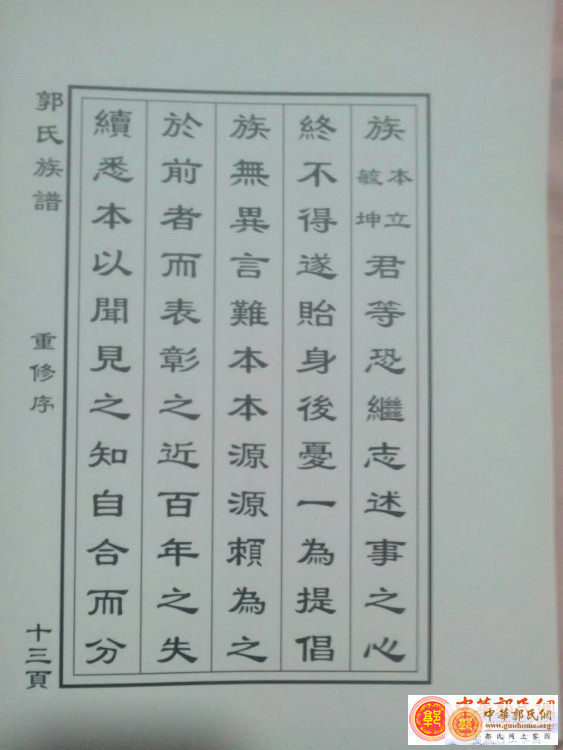 族本立毓坤君等恐繼志述事之心
終不得遂貽身後憂一為提倡
族無異言難本本源源賴為之
於前者而表彰之近百年之失
續悉本以聞見之知自合而分
郭氏族譜
重修序
十三頁
中華郭氏網
中華郭氏網
www.guohome.org
郭氏網上家園